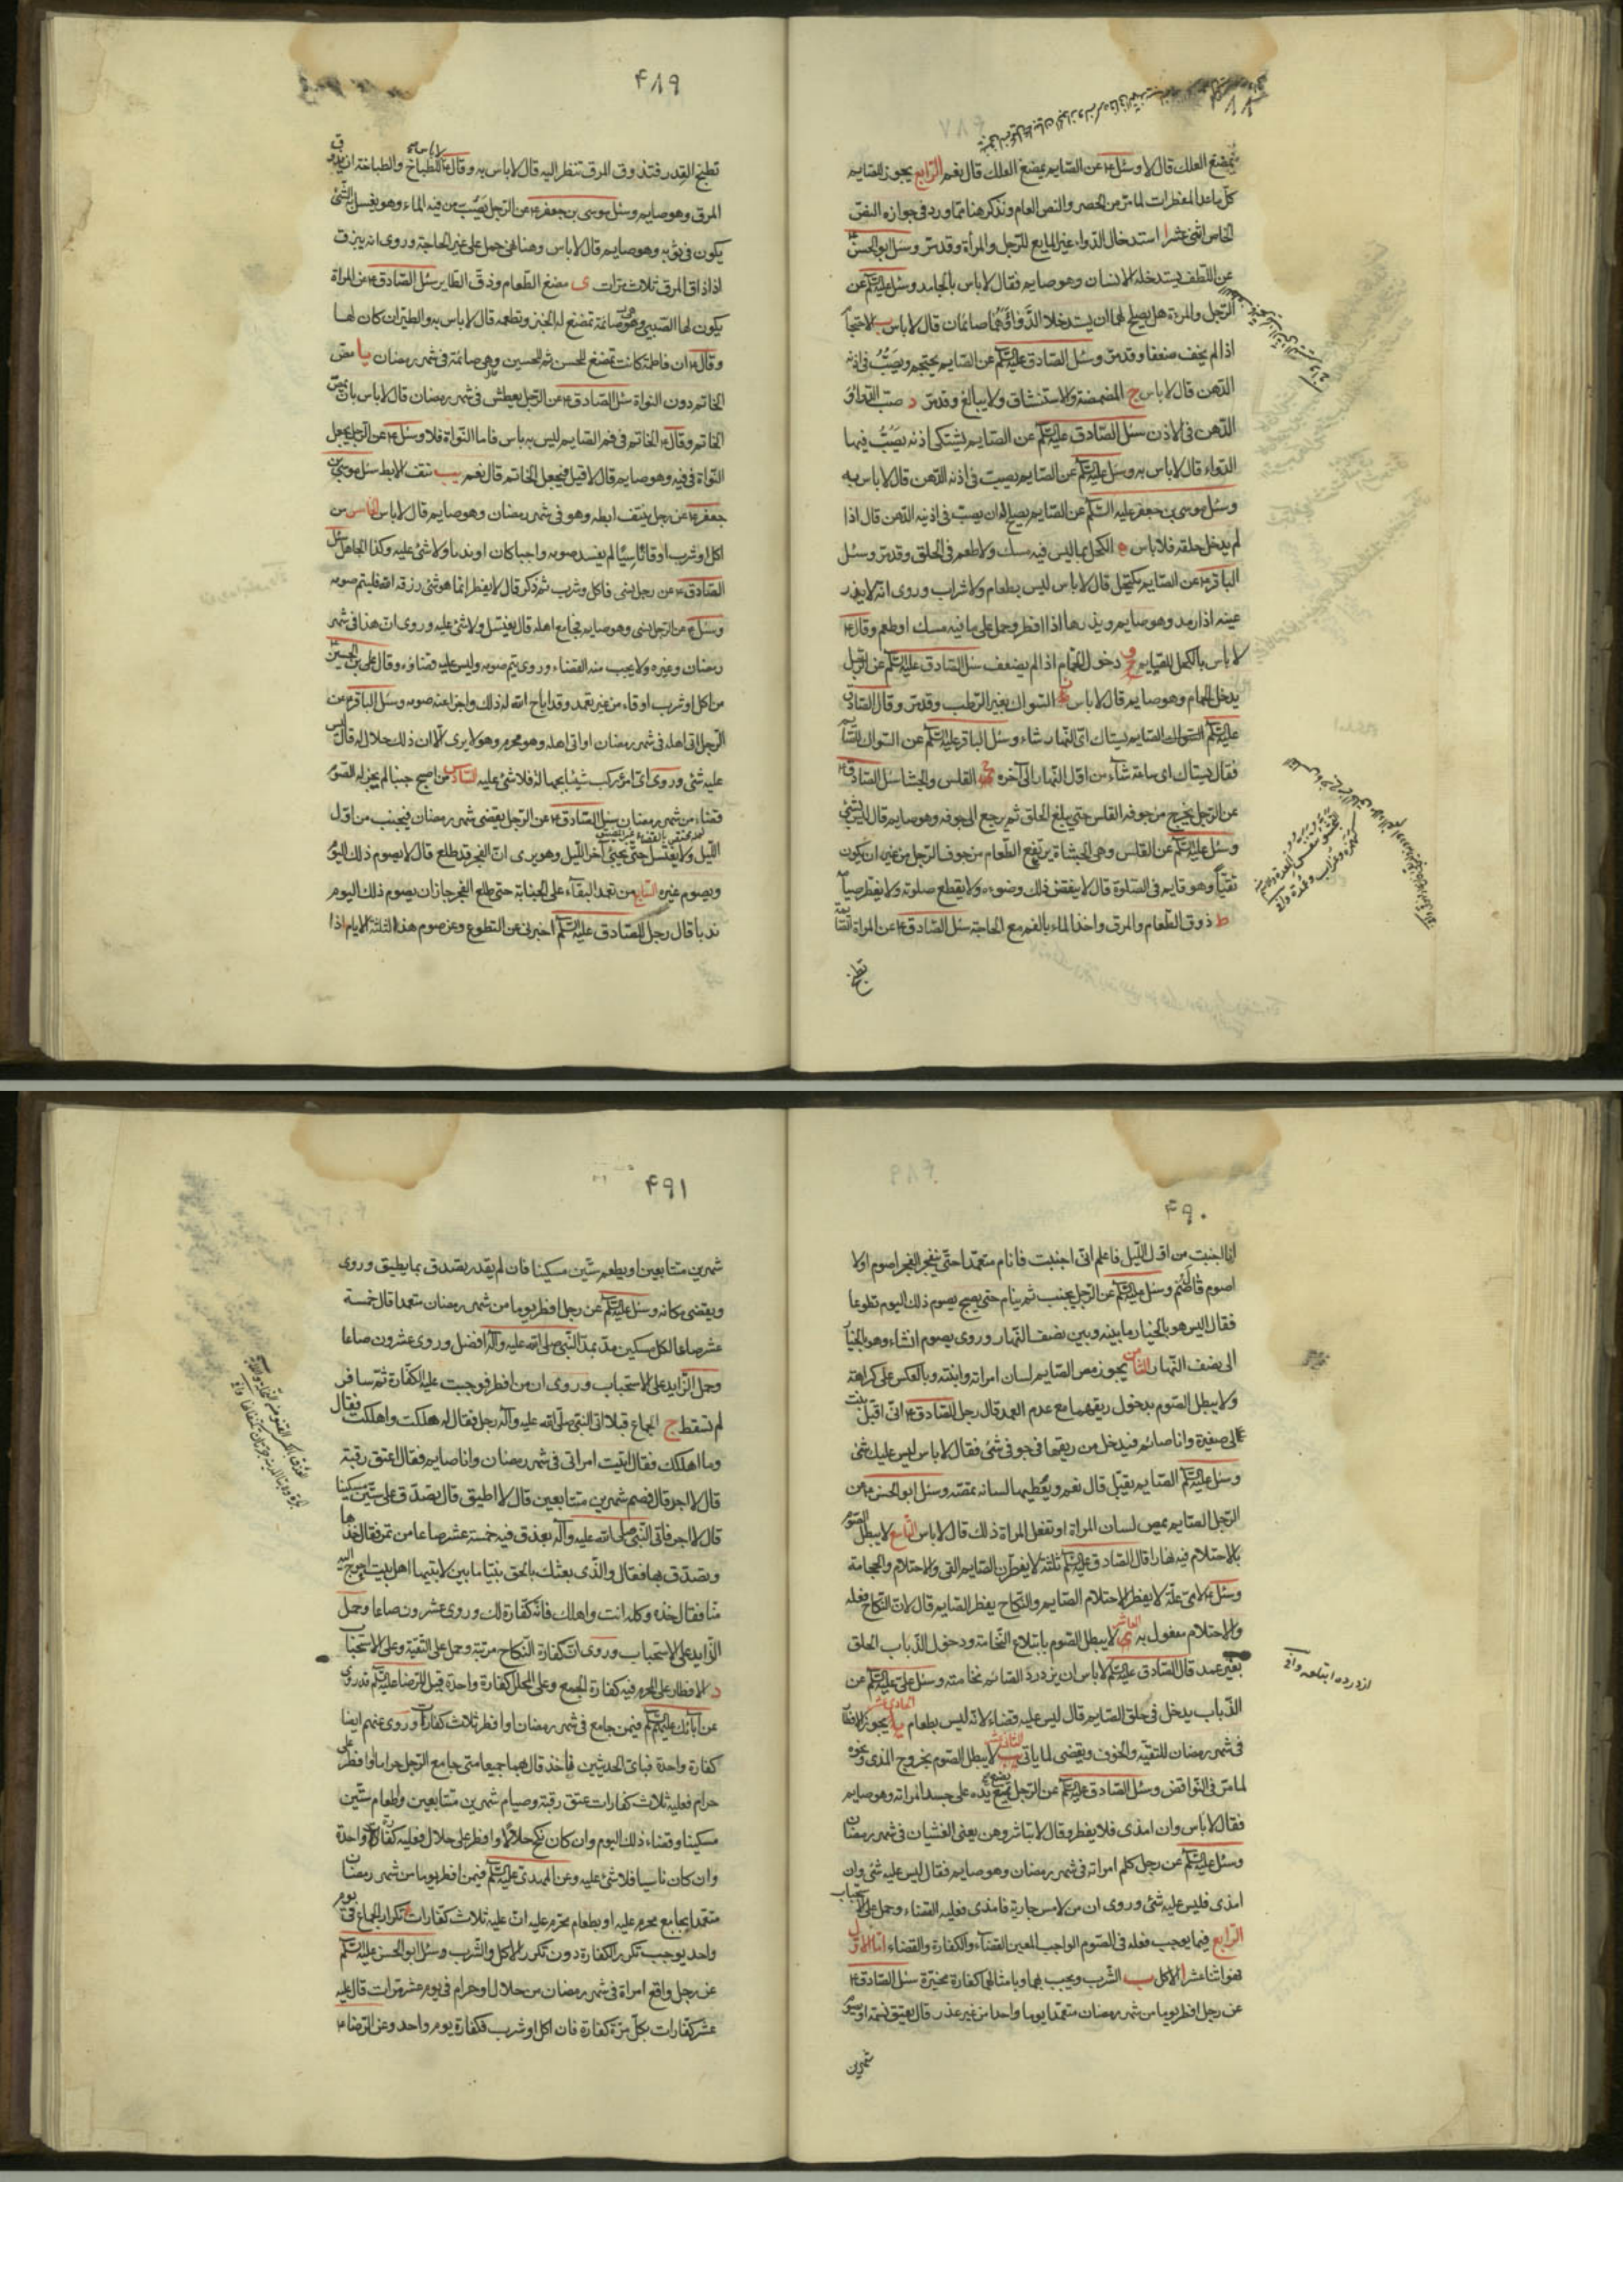 يمضغ العلك قال لا وسئل ع عن الصايم يمضغ العلك قال نعم الرابع يجوز للصايم
كل ما عدا المفطرات لما مر من الحصر والنص العام ونذكر هنا مما ورد في جوازه النص
الخاص اثنى عشر ا استدخال الدواء غير المايع للرجل والمرأة وقد مر وسئل ابو الحسن ع
عن اللطف يستدخله الانسان وهو صايم فقال لا باس بالجامد وسئل عليه السلام عن
الرجل والمرءة هل يصلح لهما ان يستدخلا الدواء وهما صائمان قال لا باس ب الاحتجا
اذا لم يخف ضعفا وقد مر وسئل الصادق عليه السلام عن الصايم يحتجم ويصب في اذنه
الدهن قال لا باس ج المضمضة والاستنشاق ولا يبالغ وقد مر د صب الدواء و
الدهن في الاذن سئل الصادق عليه السلام عن الصايم يشتكي اذنه يصب فيها
الدواء قال لا باس به وسئل عليه السلام عن الصايم يصب في اذنه الدهن قال لا باس به
وسئل موسى بن جعفر عليه السلام عن الصايم يصلح له ان يصب في اذنيه الدهن قال اذا
لم يدخل حلقه فلا باس ه الكحل بما ليس فيه مسك ولا طعم في الحلق وقد مر وسئل
الباقر ع عن الصايم يكتحل قال لا باس ليس بطعام ولا شراب وروى انه لا يذر
عينه اذا رمد وهو صايم ويذرها اذا افطر وحمل على ما فيه مسك او طعم وقال ع
لا باس بالكحل للصايم و دخول الحمام اذا لم يضعف سئل الصادق عليه السلام عن الرجل
يدخل الحمام وهو صايم قال لا باس ز السواك بغير الرطب وقد مر وقال الصادق
عليه السلام الصايم يستاك اى النهار شاء وسئل الباقر عليه السلام عن السواك للصايم
فقال يستاك اى ساعة شاء من اول النهار الى آخره ح القلس والجشا سئل الصادق ع
عن الرجل يخرج من جوفه القلس حتى يبلغ الحلق ثم يرجع الى جوفه وهو صايم قال ليس بشئ
وسئل ع عن القلس وهى الجشاة يرتفع الطعام من جوف الرجل من غير ان يكون
تقيأ وهو قايم في الصلوة قال لا ينقض ذلك وضوءه ولا يقطع صلوته ولا يفطر صيامه
ط ذوق الطعام والمرق واخذ الماء بالفم مع الحاجة سئل الصادق ع عن المراة الصائمة
تطبخ
۴۸۹
تطبخ القدر فتذوق المرق تنظر اليه قال لا باس به وقال ع لا باس للطباخ والطباخة ان يذوق
المرق وهو صايم وسئل موسى بن جعفر ع عن الرجل يصب من فيه الماء وهو يغسل به الشئ
يكون في ثوبه وهو صايم قال لا باس وهنا نهى حمل على غير الحاجة وروى انه يبزق
اذا ذاق المرق ثلاث مرات ى مضغ الطعام وذق الطاير سئل الصادق ع عن المراة
يكون لها الصبي وهي صائمة تمضغ له الخبز وتطعمه قال لا باس به والطير ان كان لها
وقال ع ان فاطمة كانت تمضغ للحسن ثم للحسين وهي صائمة في شهر رمضان يا مص
الخاتم دون النواة سئل الصادق ع عن الرجل يعطش في شهر رمضان قال لا باس بان يمص
الخاتم وقال ع الخاتم في فم الصايم ليس به باس فاما النواة فلا وسئل ع عن الرجل يجعل
النواة في فيه وهو صايم قال لا قيل فيجعل الخاتم قال نعم يب نتف الابط سئل موسى بن
جعفر ع عن رجل ينتف ابطه وهو في شهر رمضان وهو صايم قال لا باس الخامس من
اكل او شرب او قاء ناسيا لم يفسد صومه واجبا كان او ندبا ولا شئ عليه وكذا الجاهل سئل
الصادق ع عن رجل نسى فاكل وشرب ثم ذكر قال لا يفطر انما هو شئ رزقه الله فليتم صومه
وسئل ع عن الرجل ينسى وهو صايم يجامع اهله قال يغتسل ولا شئ عليه وروى ان هذا في شهر
رمضان وغيره ولا يجب منه القضاء وروى يتم صومه وليس عليه قضاؤه وقال على بن الحسين ع
من اكل او شرب او قاء من غير تعمد وقد اباح الله له ذلك واجزا عنه صومه وسئل الباقر ع عن
الرجل اتى اهله في شهر رمضان او اتى اهله وهو محرم وهو لا يرى الا ان ذلك حلال له قال ليس
عليه شئ وروى اى امرئ ركب شيئا بجهالة فلا شئ عليه السادس من اصبح جنبا لم يجز له الصوم
قضاء من شهر رمضان سئل الصادق ع عن الرجل يقضى شهر رمضان فيجنب من اول
الليل ولا يغتسل حتى يجيئ آخر الليل وهو يرى ان الفجر قد طلع قال لا يصوم ذلك اليوم
ويصوم غيره السابع من تعمد البقاء على الجنابة حتى طلع الفجر جاز ان يصوم ذلك اليوم
ندبا قال رجل للصادق عليه السلام اخبرنى عن التطوع وعن صوم هذه الثلثة الايام اذا
۴۹۰
انا اجنبت من اول الليل فاعلم انى اجنبت فانام متعمدا حتى ينفجر الفجر اصوم او لا
اصوم قال صم وسئل عليه السلام عن الرجل يجنب ثم ينام حتى يصبح يصوم ذلك اليوم تطوعا
فقال اليس هو بالخيار ما بينه وبين نصف النهار وروى يصوم انشاء وهو بالخيار
الى نصف النهار الثامن يجوز مص الصايم لسان امراته وابنته وبالعكس على كراهة
ولا يبطل الصوم بدخول ريقهما مع عدم العمد قال رجل للصادق ع انى اقبل بنت
لى صغيرة وانا صائم فيدخل من ريقها في جوفى شئ فقال لا باس ليس عليك شئ
وسئل عليه السلام الصايم يقبل قال نعم ويعطيها لسانه تمصه وسئل ابو الحسن ع عن
الرجل الصايم يمص لسان المراة او تفعل المراة ذلك قال لا باس التاسع لا يبطل الصوم
بالاحتلام فيه نهارا قال الصادق عليه السلام ثلثة لا يفطرن الصايم القى والاحتلام والحجامة
وسئل ع لاى علة لا يفطر الاحتلام الصايم والنكاح يفطر الصايم قال لان النكاح فعله
والاحتلام مفعول به العاشر لا يبطل الصوم بابتلاع النخامة ودخول الذباب الحلق
بغير عمد قال الصادق عليه السلام لا باس ان يزدرد الصائم نخامته وسئل على عليه السلام عن
الذباب يدخل في حلق الصايم قال ليس عليه قضاء لانه ليس بطعام الحادى عشر يجوز الافطار
في شهر رمضان للتقية والخوف ويقضى لما ياتى الثانى عشر لا يبطل الصوم بخروج المذى ونحوه
لما مر في النواقض وسئل الصادق عليه السلام عن الرجل يضع يده على جسد امراته وهو صايم
فقال لا باس وان امذى فلا يفطر وقال لا تباشروهن يعنى الغشيان في شهر رمضان
وسئل عليه السلام عن رجل كلم امراته في شهر رمضان وهو صايم فقال ليس عليه شئ وان
امذى فليس عليه شئ وروى ان من لامس جارية فامذى فعليه القضاء وحمل على الاستحباب
الرابع فيما يوجب فعله في الصوم الواجب المعين القضاء والكفارة والقضاء اما الاول
فهو اثنا عشر ا الاكل ب الشرب ويجب بهما وبامثالهما كفارة مخيرة سئل الصادق ع
عن رجل افطر يوما من شهر رمضان متعمدا يوما واحدا من غير عذر قال يعتق نسمة او يصوم
شهرين
ازدرده ابتلعه
۴۹۱
شهرين متتابعين او يطعم ستين مسكينا فان لم يقدر تصدق بما يطيق وروى
ويقضى مكانه وسئل عليه السلام عن رجل افطر يوما من شهر رمضان متعمدا قال خمسة
عشر صاعا لكل مسكين مد بمد النبى صلى الله عليه وآله افضل وروى عشرون صاعا
وحمل الزايد على الاستحباب وروى ان من افطر فوجبت عليه الكفارة ثم سافر
لم تسقط ج الجماع قبلا اتى النبى صلى الله عليه وآله رجل فقال له هلكت واهلكت فقال
وما اهلكك فقال اتيت امراتى في شهر رمضان وانا صايم فقال اعتق رقبة
قال لا اجد قال فصم شهرين متتابعين قال لا اطيق قال تصدق على ستين مسكينا
قال لا اجد فاتى النبى صلى الله عليه وآله بعذق فيه خمسة عشر صاعا من تمر فقال خذها
وتصدق بها فقال والذى بعثك بالحق نبيا ما بين لابتيها اهل بيت احوج اليه
منا فقال خذه وكله انت واهلك فانه كفارة لك وروى عشرون صاعا وحمل
الزايد على الاستحباب وروى ان كفارة النكاح مرتبة وحمل على التقية وعلى الاستحباب
د الافطار على الحرم فيه كفارة الجمع وعلى المحلل كفارة واحدة قيل للرضا عليه السلام قد روى
عن آبائك عليهم السلام فيمن جامع في شهر رمضان او افطر ثلاث كفارات وروى عنهم ايضا
كفارة واحدة فباى الحديثين ناخذ قال بهما جميعا متى جامع الرجل حراما او افطر على
حرام فعليه ثلاث كفارات عتق رقبة وصيام شهرين متتابعين واطعام ستين
مسكينا وقضاء ذلك اليوم وان كان نكح حلالا او افطر على حلال فعليه كفارة واحدة
وان كان ناسيا فلا شئ عليه وعن المهدى عليه السلام فيمن افطر يوما من شهر رمضان
متعمدا بجماع محرم عليه او بطعام محرم عليه ان عليه ثلاث كفارات ه تكرار الجماع في يوم
واحد يوجب تكرر الكفارة دون تكرر الاكل والشرب وسئل ابو الحسن عليه السلام
عن رجل واقع امراة في شهر رمضان من حلال او حرام في يوم عشر مرات قال عليه
عشر كفارات بكل مرة كفارة فان اكل او شرب فكفارة يوم واحد وعن الرضا ع